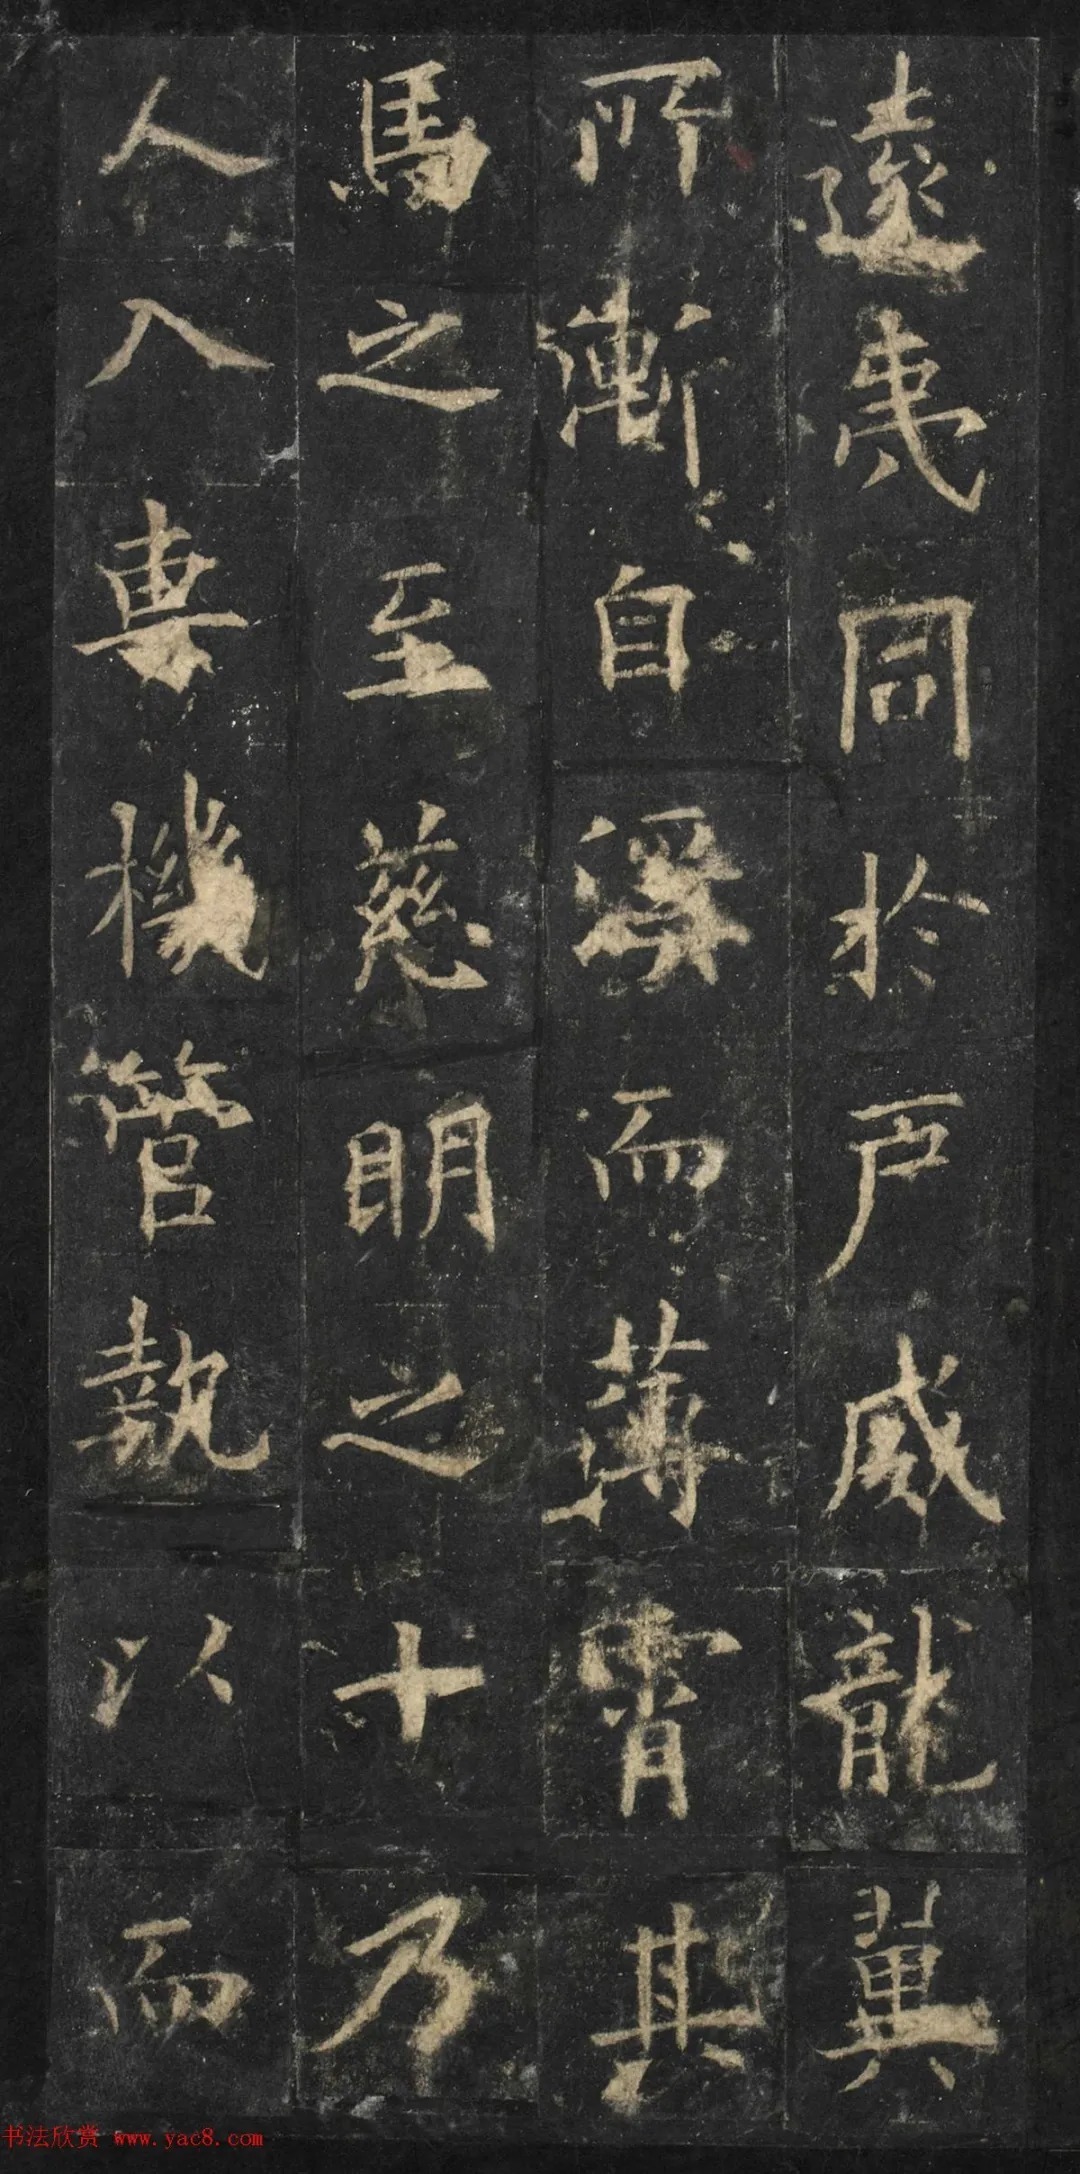 遠同於戶威龍冀
所漸自溪而薄霄其
馬之至慈明之十乃
人入專機管執以而
书法欣赏 www.yac8.com